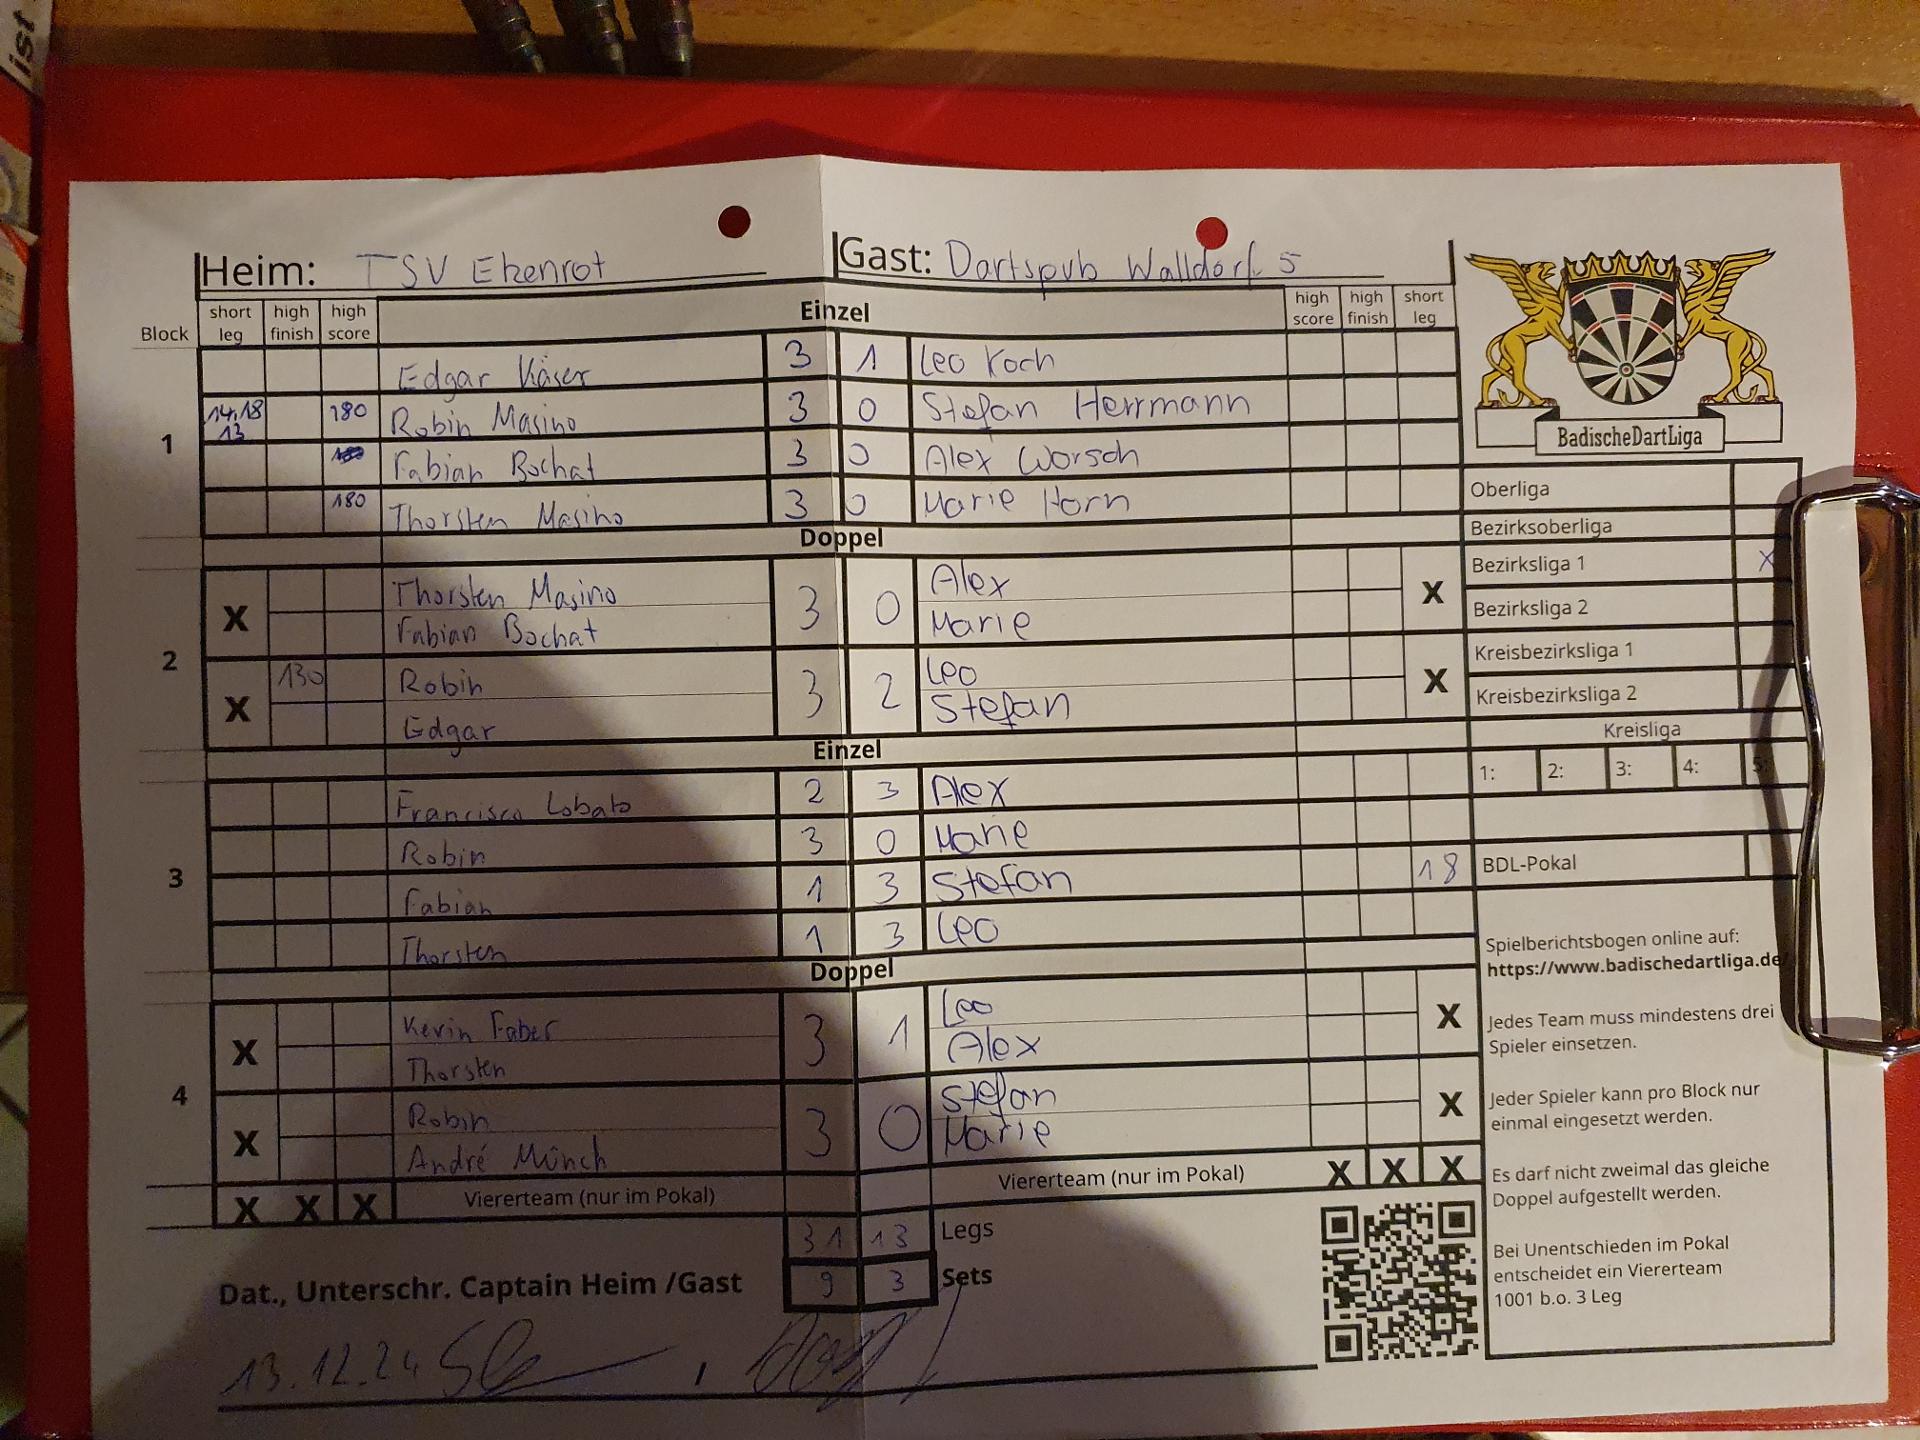 ist
Heim: TSV Etzenrot
Gast: Dartspub Walldorf 5
Block short leg high finish high score Einzel high score high finish short leg
Edgar Käser 3 1 Leo Koch
1
14,18 13 180 Robin Masino 3 0 Stefan Herrmann
Fabian Bochat 3 0 Alex Worsch
180 Thorsten Masino 3 0 Marie Horn
Doppel
2
X Thorsten Masino 3 0 Alex X
Fabian Bochat Marie
X 130 Robin 3 2 Leo X
Edgar Stefan
Einzel
3
Francisco Lobato 2 3 Alex
Robin 3 0 Marie
Fabian 1 3 Stefan 18
Thorsten 1 3 Leo
Doppel
4
X Kevin Faber 3 1 Leo X
Thorsten Alex
X Robin 3 0 Stefan X
André Münch Marie
X X X Viererteam (nur im Pokal) Viererteam (nur im Pokal) X X X
31 13 Legs
9 3 Sets
Dat., Unterschr. Captain Heim /Gast
13.12.24
BadischeDartLiga
Oberliga
Bezirksoberliga
Bezirksliga 1 X
Bezirksliga 2
Kreisbezirksliga 1
Kreisbezirksliga 2
Kreisliga
1: 2: 3: 4: 5:
BDL-Pokal
Spielberichtsbogen online auf:
https://www.badischedartliga.de/
Jedes Team muss mindestens drei
Spieler einsetzen.
Jeder Spieler kann pro Block nur
einmal eingesetzt werden.
Es darf nicht zweimal das gleiche
Doppel aufgestellt werden.
Bei Unentschieden im Pokal
entscheidet ein Viererteam
1001 b.o. 3 Leg